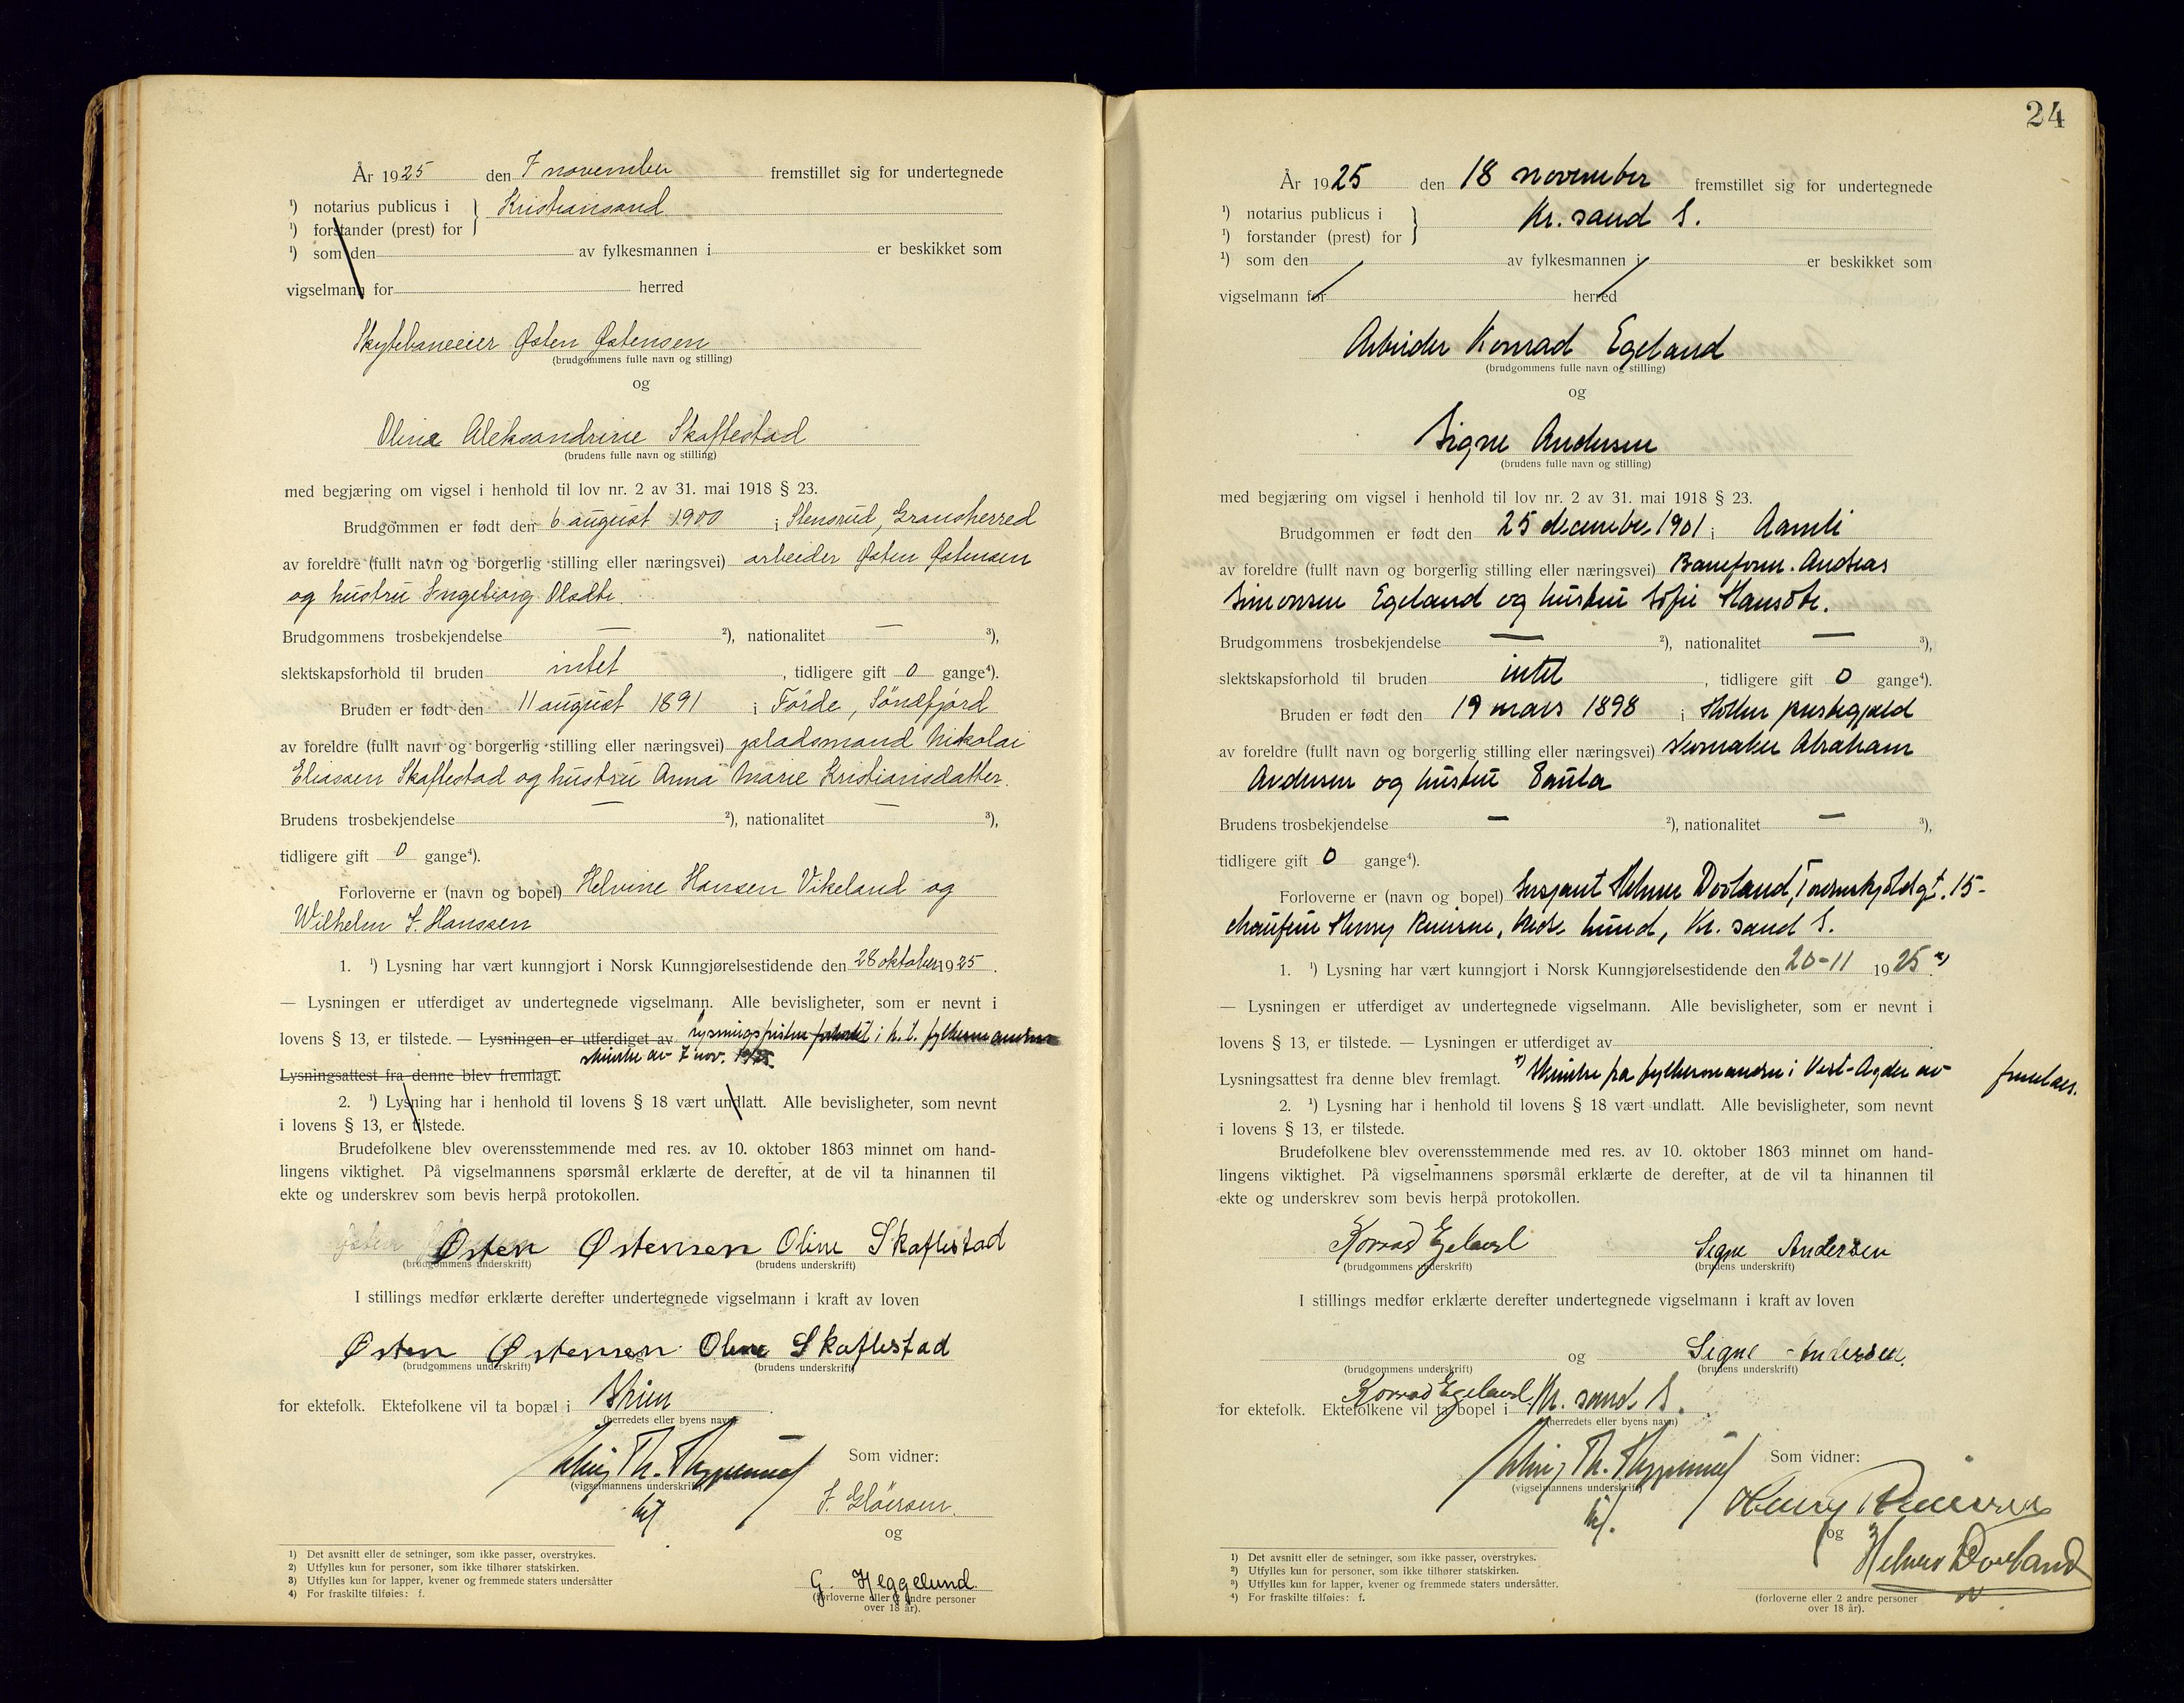 År 1925 den 7 november fremstillet sig for undertegnede
¹) notarius publicus i } Kristiansand
¹) forstander (prest) for
¹) som den av fylkesmannen i er beskikket som
vigselmann for herred
Skytebaneeier Østen Østensen
(brudgommens fulle navn og stilling)
og
Oline Aleksandrine Skaflestad
(brudens fulle navn og stilling)
med begjæring om vigsel i henhold til lov nr. 2 av 31. mai 1918 § 23.
Brudgommen er født den 6 august 1900 i Stensrud, Gransherred
av foreldre (fullt navn og borgerlig stilling eller næringsvei) arbeider Østen Østensen
og hustru Ingeborg Olsdtr.
Brudgommens trosbekjendelse — ²), nationalitet — ³),
slektskapsforhold til bruden intet, tidligere gift 0 gange⁴).
Bruden er født den 11 august 1891 i Förde, Söndfjord
av foreldre (fullt navn og borgerlig stilling eller næringsvei) pladsmand Nikolai
Eliassen Skaflestad og hustru Anna Marie Kristiansdatter.
Brudens trosbekjendelse — ²), nationalitet — ³),
tidligere gift 0 gange⁴).
Forloverne er (navn og bopel) Helvine Hansen Vikeland og
Wilhelm S. Hanssen
1. ¹) Lysning har vært kunngjort i Norsk Kunngjørelsestidende den 28 oktober 1925.
— Lysningen er utferdiget av undertegnede vigselmann. Alle bevisligheter, som er nevnt i
lovens § 13, er tilstede. — Lysningen er utferdiget av lysningsfristen forkortet i h. t. fylkesmandens
skrivelse av 7 nov. 1925.
Lysningsattest fra denne blev fremlagt.
2. ¹) Lysning har i henhold til lovens § 18 vært undlatt. Alle bevisligheter, som nevnt
i lovens § 13, er tilstede.
Brudefolkene blev overensstemmende med res. av 10. oktober 1863 minnet om hand-
lingens viktighet. På vigselmannens spørsmål erklærte de derefter, at de vil ta hinannen til
ekte og underskrev som bevis herpå protokollen.
Østen Østensen Oline Skaflestad
(brudgommens underskrift) (brudens underskrift)
I stillings medfør erklærte derefter undertegnede vigselmann i kraft av loven
Østen Østensen Oline Skaflestad
(brudgommens underskrift) og (brudens underskrift)
for ektefolk. Ektefolkene vil ta bopæl i Skien
(herredets eller byens navn)
(vigselmannens underskrift)
Som vidner:
og
G. Heggelund.
(forloverne eller 2 andre personer
over 18 år).
1) Det avsnitt eller de setninger, som ikke passer, overstrykes.
2) Utfylles kun for personer, som ikke tilhører statskirken.
3) Utfylles kun for lapper, kvener og fremmede staters undersåtter
4) For fraskilte tilføies: f.
24
År 1925 den 18 november fremstillet sig for undertegnede
¹) notarius publicus i } Kr. sand S.
¹) forstander (prest) for
¹) som den av fylkesmannen i er beskikket som
vigselmann for herred
Arbeider Konrad Egeland
(brudgommens fulle navn og stilling)
og
Signe Andersen
(brudens fulle navn og stilling)
med begjæring om vigsel i henhold til lov nr. 2 av 31. mai 1918 § 23.
Brudgommen er født den 25 december 1901 i Aamli
av foreldre (fullt navn og borgerlig stilling eller næringsvei) Baneform. Andreas
Simonsen Egeland og hustru Sofie Hansdtr.
Brudgommens trosbekjendelse — ²), nationalitet — ³),
slektskapsforhold til bruden intet, tidligere gift 0 gange⁴).
Bruden er født den 19 mars 1898 i Holtm prestegjeld
av foreldre (fullt navn og borgerlig stilling eller næringsvei) Skomaker Abraham
Andersen og hustru
Brudens trosbekjendelse — ²), nationalitet — ³),
tidligere gift 0 gange⁴).
Forloverne er (navn og bopel) Sersjant Helmer Dovland, Tordenskjoldgt. 15-
chauffeur Henry, Kr. sand S.
1. ¹) Lysning har vært kunngjort i Norsk Kunngjørelsestidende den 20-11 1925. x)
— Lysningen er utferdiget av undertegnede vigselmann. Alle bevisligheter, som er nevnt i
lovens § 13, er tilstede. — Lysningen er utferdiget av
Lysningsattest fra denne blev fremlagt. x) Skrivelse fra fylkesmanden i Vest-Agder av
2. ¹) Lysning har i henhold til lovens § 18 vært undlatt. Alle bevisligheter, som nevnt
i lovens § 13, er tilstede.
Brudefolkene blev overensstemmende med res. av 10. oktober 1863 minnet om hand-
lingens viktighet. På vigselmannens spørsmål erklærte de derefter, at de vil ta hinannen til
ekte og underskrev som bevis herpå protokollen.
Konrad Egeland Signe Andersen
(brudgommens underskrift) (brudens underskrift)
I stillings medfør erklærte derefter undertegnede vigselmann i kraft av loven
og Signe Andersen.
(brudgommens underskrift) (brudens underskrift)
Konrad Egeland
for ektefolk. Ektefolkene vil ta bopel i Kr. sand S.
(herredets eller byens navn)
(vigselmannens underskrift)
Som vidner:
Henry
og
Helmer Dovland
(forloverne eller 2 andre personer
over 18 år).
1) Det avsnitt eller de setninger, som ikke passer, overstrykes.
2) Utfylles kun for personer, som ikke tilhører statskirken.
3) Utfylles kun for lapper, kvener og fremmede staters undersåtter.
4) For fraskilte tilføies: f.